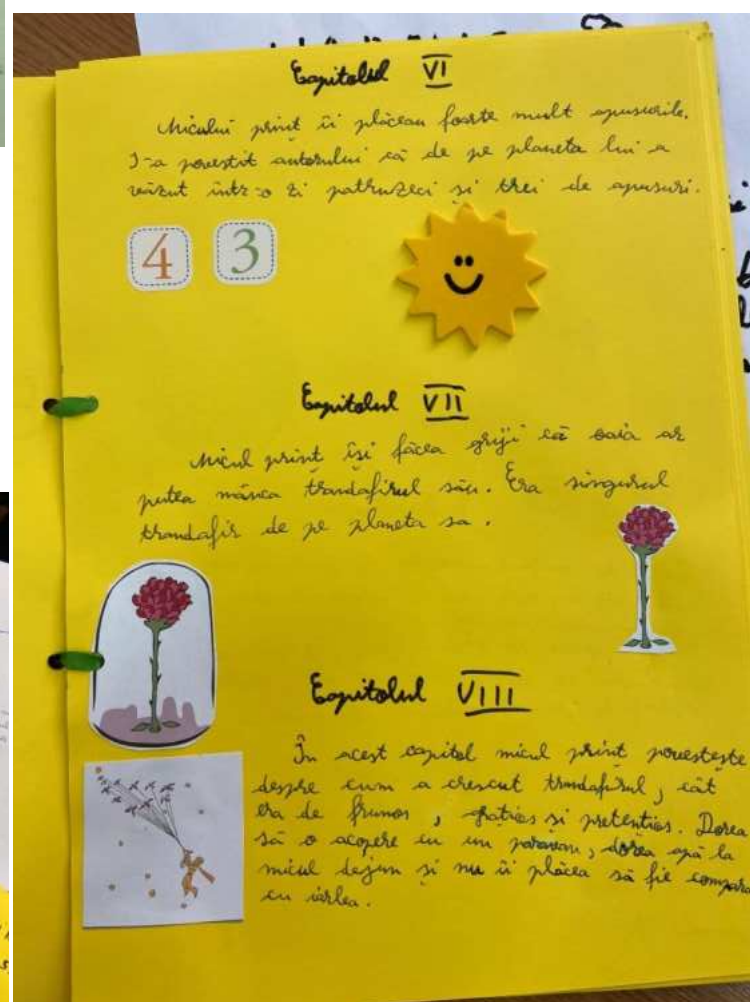 Capitolul VI
Micului prinț îi plăceau foarte mult apusurile.
I-a povestit autorului că de pe planeta lui a
văzut într-o zi patruzeci și trei de apusuri.
4 3
Capitolul VII
Micul prinț își făcea griji că oaia ar
putea mânca trandafirul său. Era singurul
trandafir de pe planeta sa.
Capitolul VIII
În acest capitol micul prinț povestește
despre cum a crescut trandafirul, cât
era de frumos, grațios si pretențios. Dorea
să o acopere cu un paravan, dorea apă la
micul dejun și nu îi plăcea să fie compara
cu iarba.